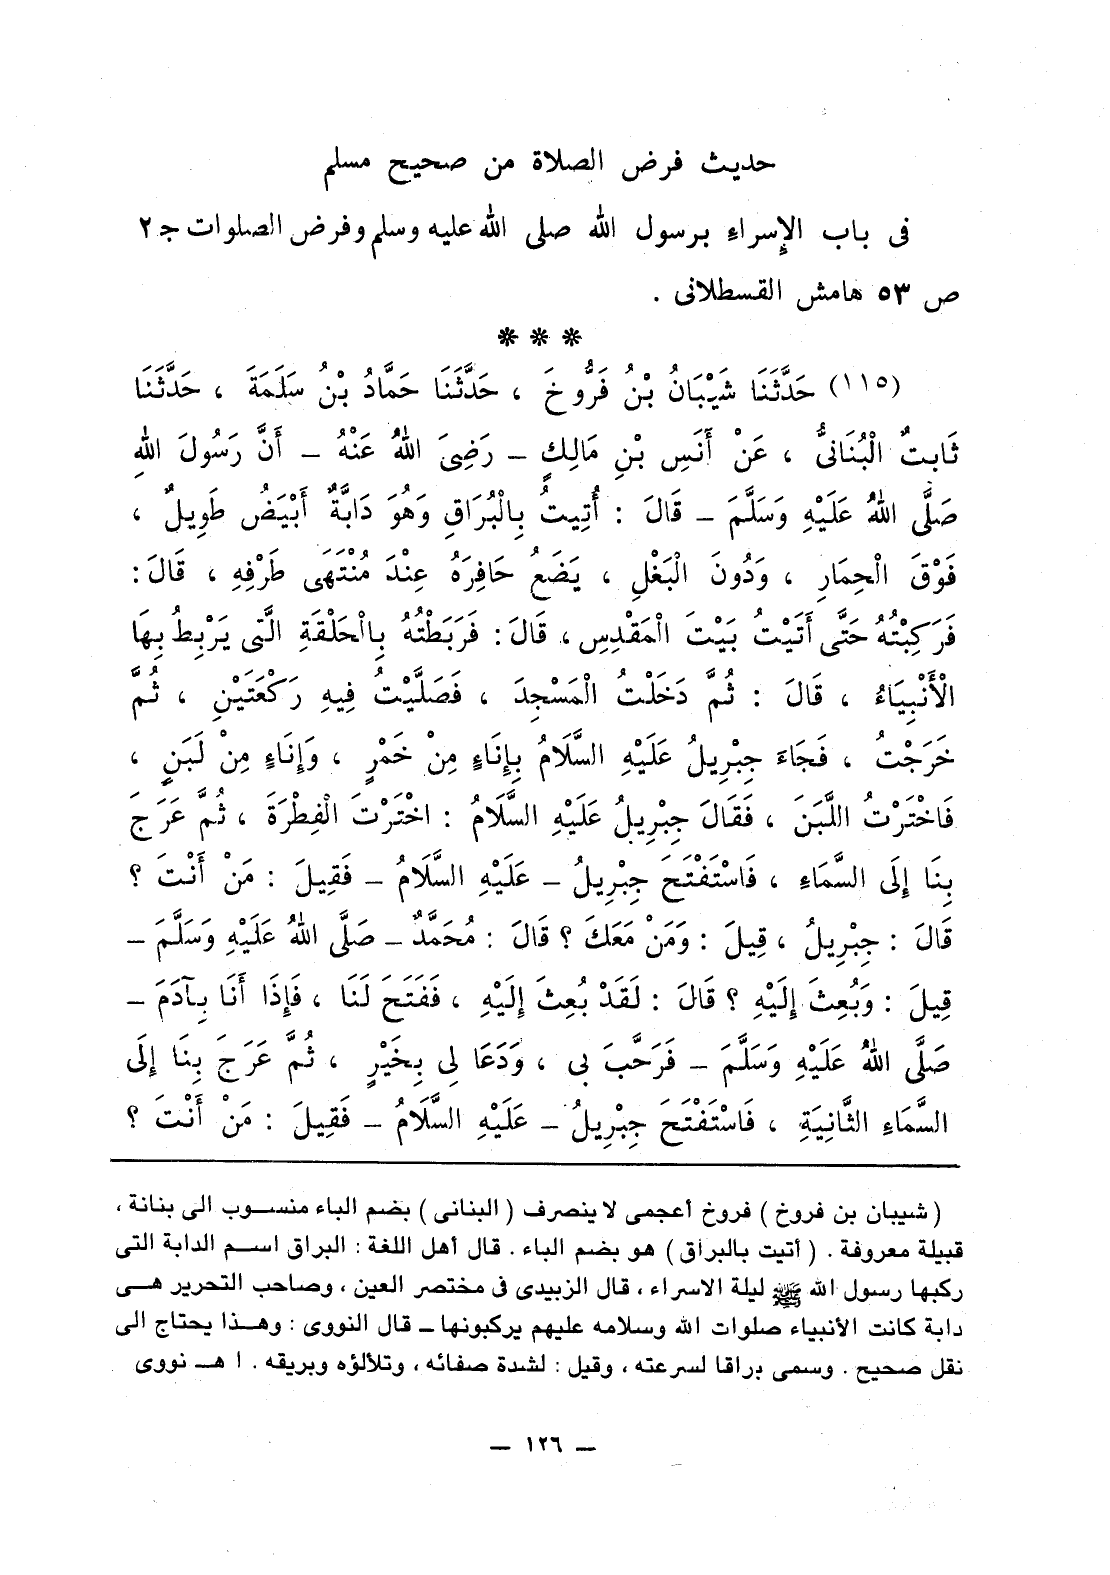 حديث فرض الصلاة من صحيح مسلم
فى باب الإسراء برسول الله صلى الله عليه وسلم وفرض الصلوات جـ ٢
ص ٥٣ هامش القسطلانى .
❊ ❊ ❊
(١١٥) حَدَّثَنَا شَيْبَانُ بْنُ فَرُّوخَ ، حَدَّثَنَا حَمَّادُ بْنُ سَلَمَةَ ، حَدَّثَنَا
ثَابِتٌ الْبُنَانِىُّ ، عَنْ أَنَسِ بْنِ مَالِكٍ – رَضِىَ اللهُ عَنْهُ – أَنَّ رَسُولَ اللهِ
صَلَّى اللهُ عَلَيْهِ وَسَلَّمَ – قَالَ : أُتِيتُ بِالْبُرَاقِ وَهُوَ دَابَّةٌ أَبْيَضُ طَوِيلٌ ،
فَوْقَ الْحِمَارِ ، وَدُونَ الْبَغْلِ ، يَضَعُ حَافِرَهُ عِنْدَ مُنْتَهَى طَرْفِهِ ، قَالَ :
فَرَكِبْتُهُ حَتَّى أَتَيْتُ بَيْتَ الْمَقْدِسِ ، قَالَ : فَرَبَطْتُهُ بِالْحَلْقَةِ الَّتِى يَرْبِطُ بِهَا
الْأَنْبِيَاءُ ، قَالَ : ثُمَّ دَخَلْتُ الْمَسْجِدَ ، فَصَلَّيْتُ فِيهِ رَكْعَتَيْنِ ، ثُمَّ
خَرَجْتُ ، فَجَاءَ جِبْرِيلُ عَلَيْهِ السَّلَامُ بِإِنَاءٍ مِنْ خَمْرٍ ، وَإِنَاءٍ مِنْ لَبَنٍ ،
فَاخْتَرْتُ اللَّبَنَ ، فَقَالَ جِبْرِيلُ عَلَيْهِ السَّلَامُ : اخْتَرْتَ الْفِطْرَةَ ، ثُمَّ عَرَجَ
بِنَا إِلَى السَّمَاءِ ، فَاسْتَفْتَحَ جِبْرِيلُ – عَلَيْهِ السَّلَامُ – فَقِيلَ : مَنْ أَنْتَ ؟
قَالَ : جِبْرِيلُ ، قِيلَ : وَمَنْ مَعَكَ ؟ قَالَ : مُحَمَّدٌ – صَلَّى اللهُ عَلَيْهِ وَسَلَّمَ –
قِيلَ : وَبُعِثَ إِلَيْهِ ؟ قَالَ : لَقَدْ بُعِثَ إِلَيْهِ ، فَفَتَحَ لَنَا ، فَإِذَا أَنَا بِآدَمَ –
صَلَّى اللهُ عَلَيْهِ وَسَلَّمَ – فَرَحَّبَ بِى ، وَدَعَا لِى بِخَيْرٍ ، ثُمَّ عَرَجَ بِنَا إِلَى
السَّمَاءِ الثَّانِيَةِ ، فَاسْتَفْتَحَ جِبْرِيلُ – عَلَيْهِ السَّلَامُ – فَقِيلَ : مَنْ أَنْتَ ؟
( شيبان بن فروخ ) فروخ أعجمى لا ينصرف ( البنانى ) بضم الباء منسوب الى بنانة ،
قبيلة معروفة . ( أتيت بالبراق ) هو بضم الباء . قال أهل اللغة : البراق اسم الدابة التى
ركبها رسول الله ﷺ ليلة الاسراء ، قال الزبيدى فى مختصر العين ، وصاحب التحرير هى
دابة كانت الأنبياء صلوات الله وسلامه عليهم يركبونها – قال النووى : وهذا يحتاج الى
نقل صحيح . وسمى براقا لسرعته ، وقيل : لشدة صفائه ، وتلألؤه وبريقه . ا هـ نووى
– ١٢٦ –